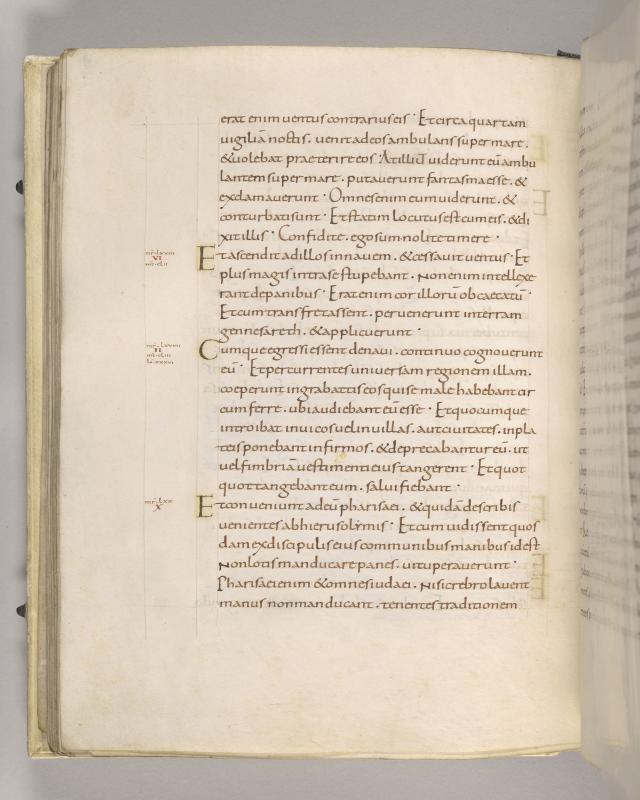 erat enim uentus contrarius eis · Et circa quartam
uigiliā noctis. uenit ad eos ambulans super mare.
& uolebat praeterire eos · At illi ut uiderunt eū ambu
lantem super mare. putauerunt fantasma esse. &
exclamauerunt · Omnes enim eum uiderunt. &
conturbati sunt · Et statim locutus est cum eis. & di
xit illis · Confidite. ego sum nolite timere ·
Et ascendit ad illos in nauem. & cessauit uentus · Et
plus magis intra se stupebant. Non enim intellexe
rant de panibus · Erat enim cor illorū obcaecatū ·
Et cum transfretassent. peruenerunt in terram
gennesareth. & applicuerunt ·
Cumque egressi essent de naui. continuo cognouerunt
eū · Et percurrentes uniuersam regionem illam.
coeperunt in grabattis eos qui se male habebant cir
cumferre. ubi audiebant eū esse · Et quocumque
introibat in uicos uel in uillas. aut ciuitates. in pla
teis ponebant infirmos. & deprecabantur eū. ut
uel fimbriā uestimenti eius tangerent · Et quot
quot tangebant eum. salui fiebant ·
Et conueniunt ad eū pharisaei. & quidā de scribis
uenientes ab hierusolimis · Et cum uidissent quos
dam ex discipulis eius communibus manibus id est
Non lotis manducare panes. uituperauerunt ·
Pharisaei enim & omnes iudaei. Nisi crebro lauent
manus non manducant. tenentes traditionem
VI
II
X